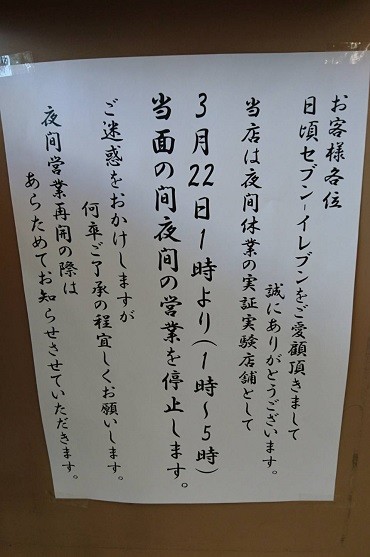 お客様各位
日頃セブン-イレブンをご愛顧頂きまして
誠にありがとうございます。
当店は夜間休業の実証実験店舗として
3月22日1時より(1時~5時)
当面の間夜間の営業を停止します。
ご迷惑をおかけしますが
何卒ご了承の程宜しくお願いします。
夜間営業再開の際は
あらためてお知らせさせていただきます。